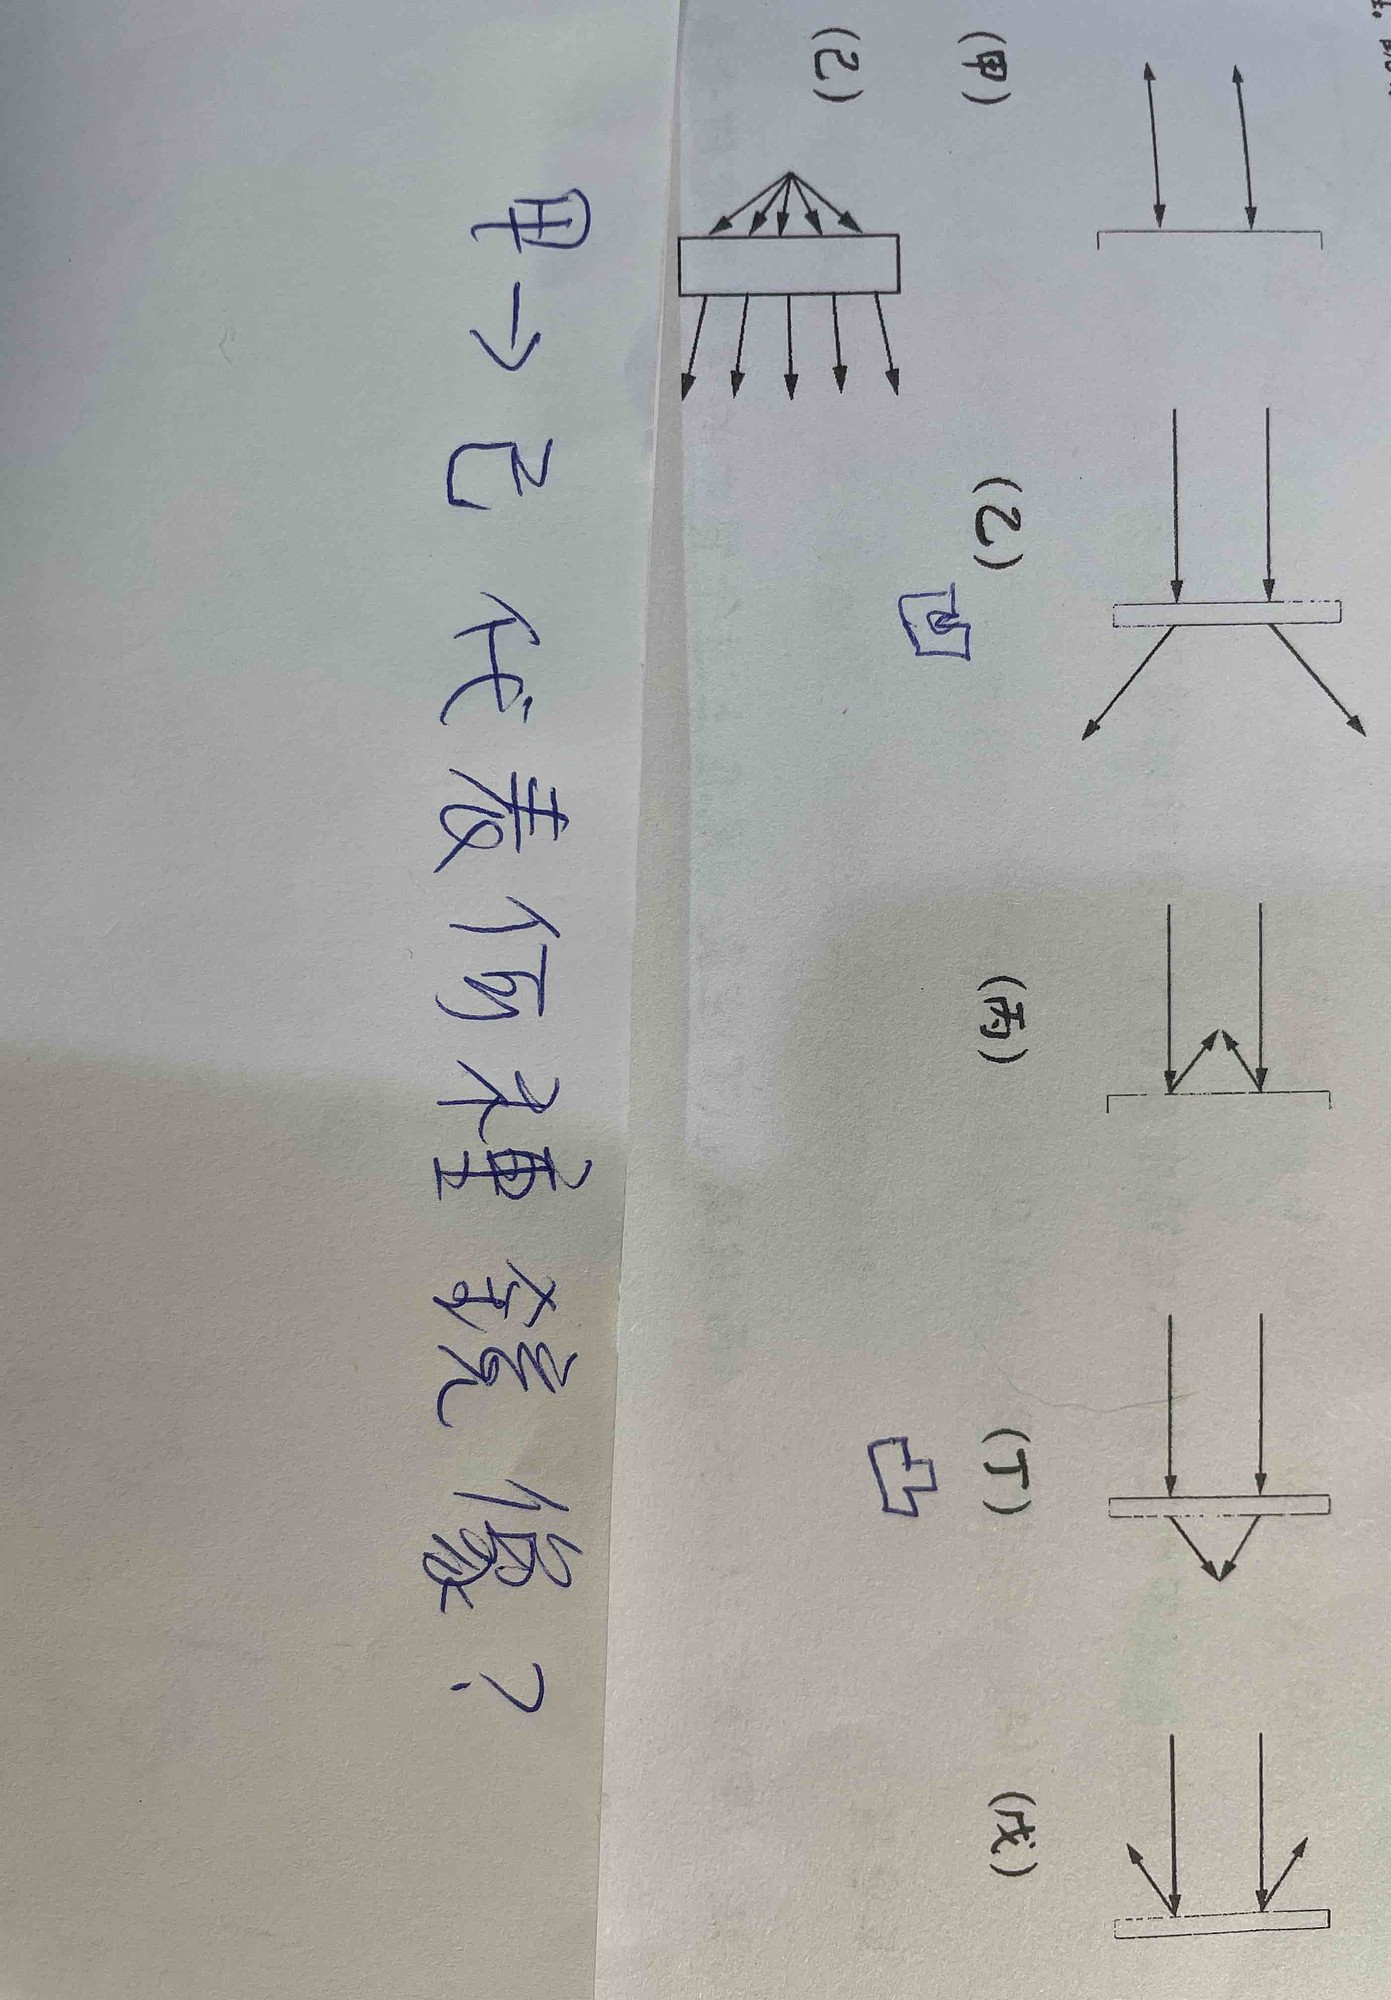 (甲)
(乙)
凹
(丙)
(丁)
凸
(戊)
(己)
甲→己代表何種鏡像?